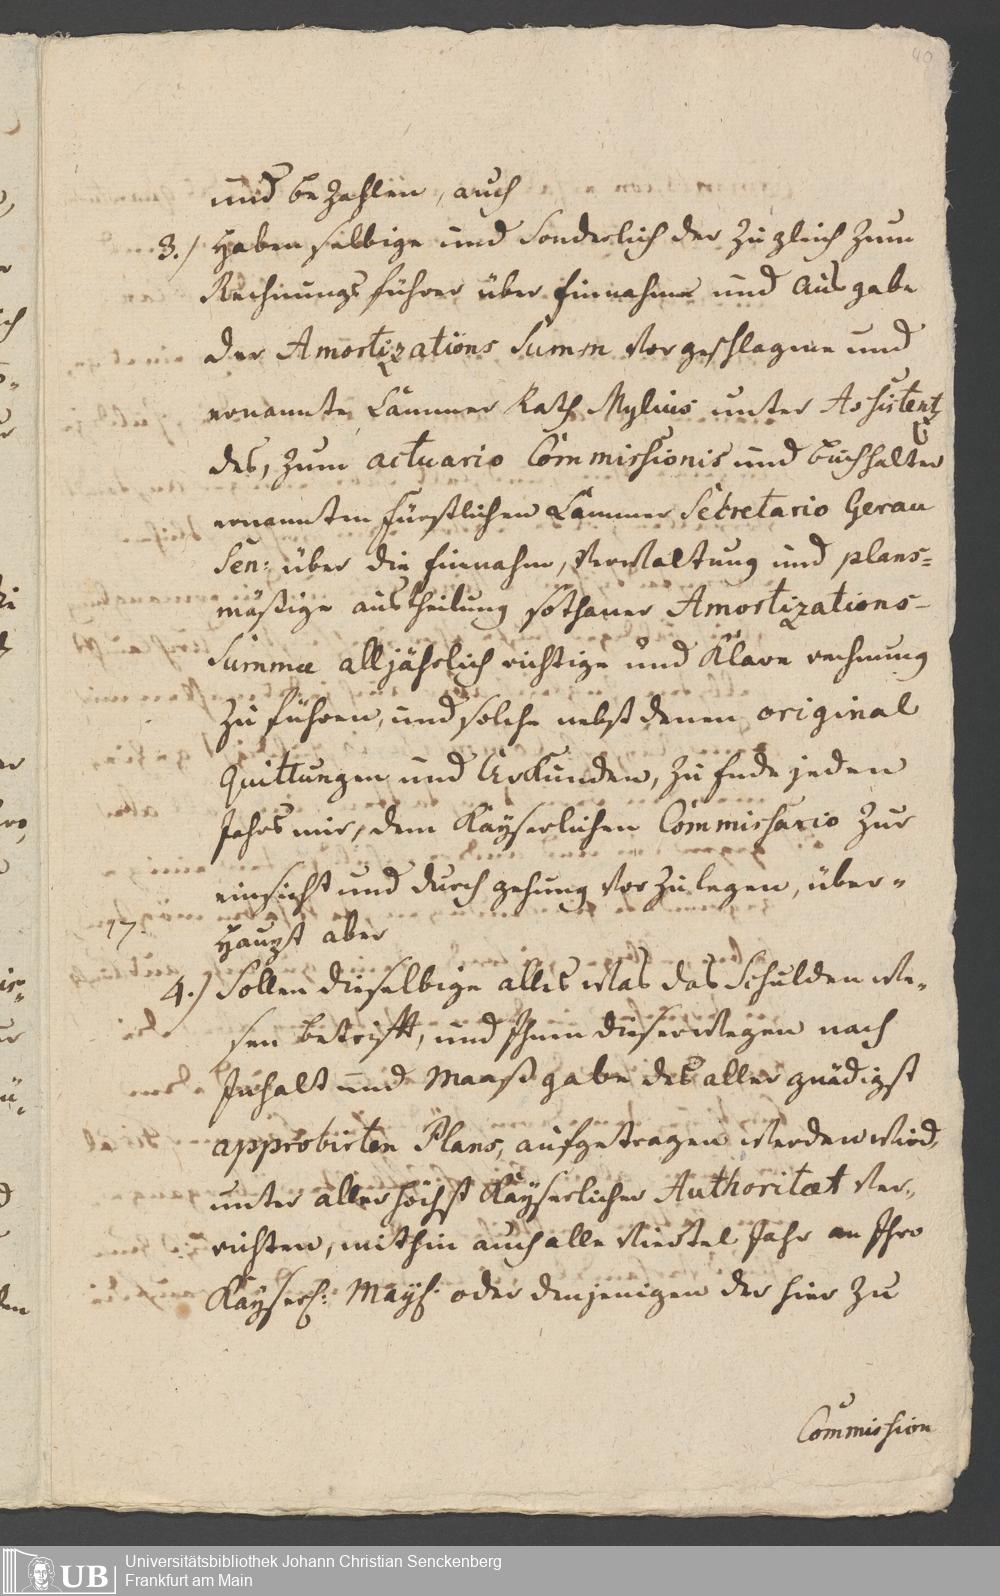 40
und bezahlen, auch
3.) Haben selbige und sonderlich der zugleich zum
Rechnungsführer über Einnahme und Ausgabe
der Amortizations Summ vorgeschlagene und
ernannte Cammer Rath Mylius unter Assistentz
des, zum actuario Commissionis und buchhalter
ernannten fürstlichen Cammer Secretario Gerau
Sen: über die Einnahm, Verwaltung und plans=
mäßige austheilung sothaner Amortizations-
Summæ alljährlich richtige und Klare rechnung
zu führen, und solche nebst denen original
Quittungen und Urkunden, zu Ende jeden
Jahrs mir, dem Kayserlichen Commissario zur
einsicht und durchgehung vorzulegen, über=
17.
Haupt aber
4.) Sollen dieselbige alles was das Schulden we=
sen betrifft, und Ihnen dieserwegen nach
Inhalt und Maasgabe des allergnädigst
approbirten Plans, aufgetragen werden wird,
unter allerhöchst Kayserlicher Authoritæt ver=
richten, mithin auch alle Viertel Jahr an Ihro
Kayserl: Mayst. oder denjenigen der hier zu
Commission
UB
Universitätsbibliothek Johann Christian Senckenberg
Frankfurt am Main